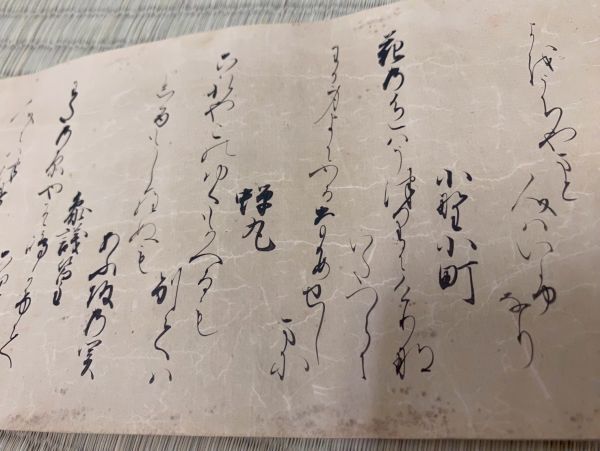 よをうち山と
人はいふ
なり
小野小町
花の色はうつりにけりな
いたつらに
わか身よにふるなかめせし
まに
蝉丸
これやこのゆくもかへるも
別ては
しるもしらぬも
あふ坂の関
参議篁
わたの原やそ嶋かけて